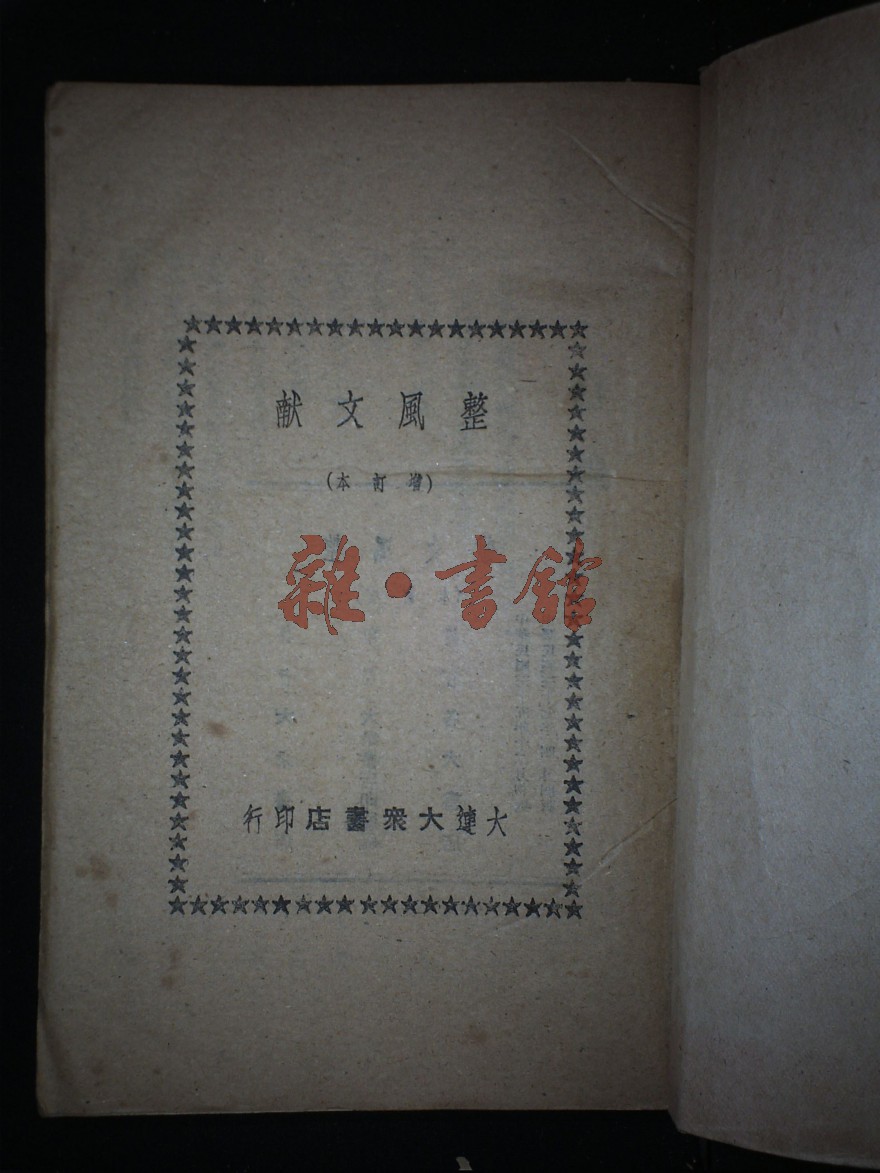 整風文献
(增訂本)
雜·書館
大連大衆書店印行